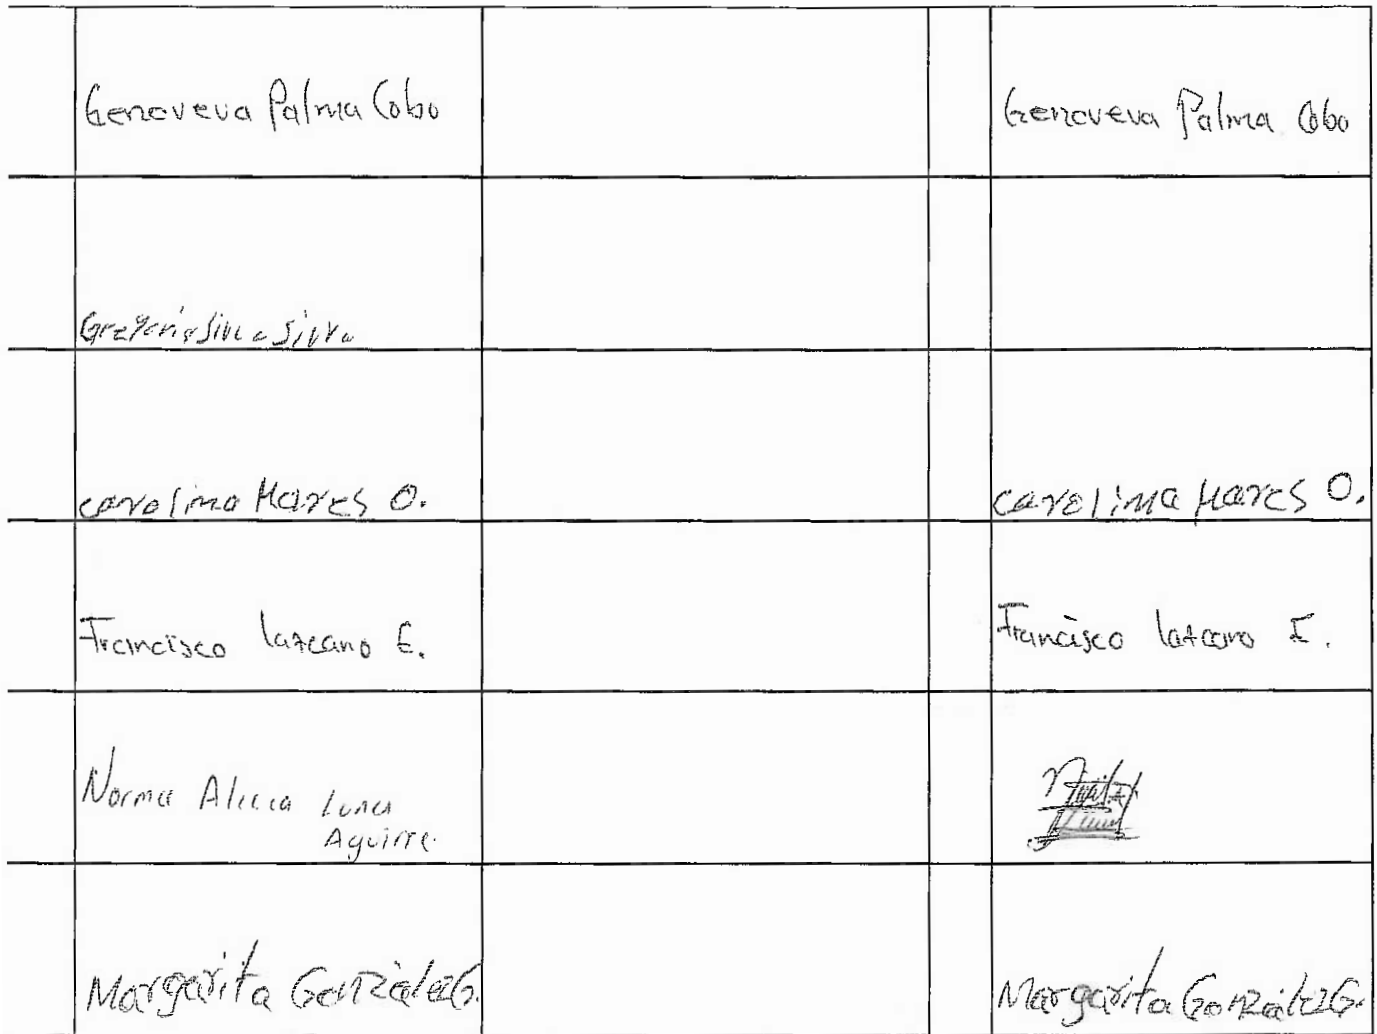 Genoveva Palma Cobo Genoveva Palma Cobo
Silva
carolina Mares O. carolina Mares O.
Francisco lazcano E. Francisco lazcano E.
Norma Alicia Luna
Aguirre.
Margarita González G. Margarita González G.